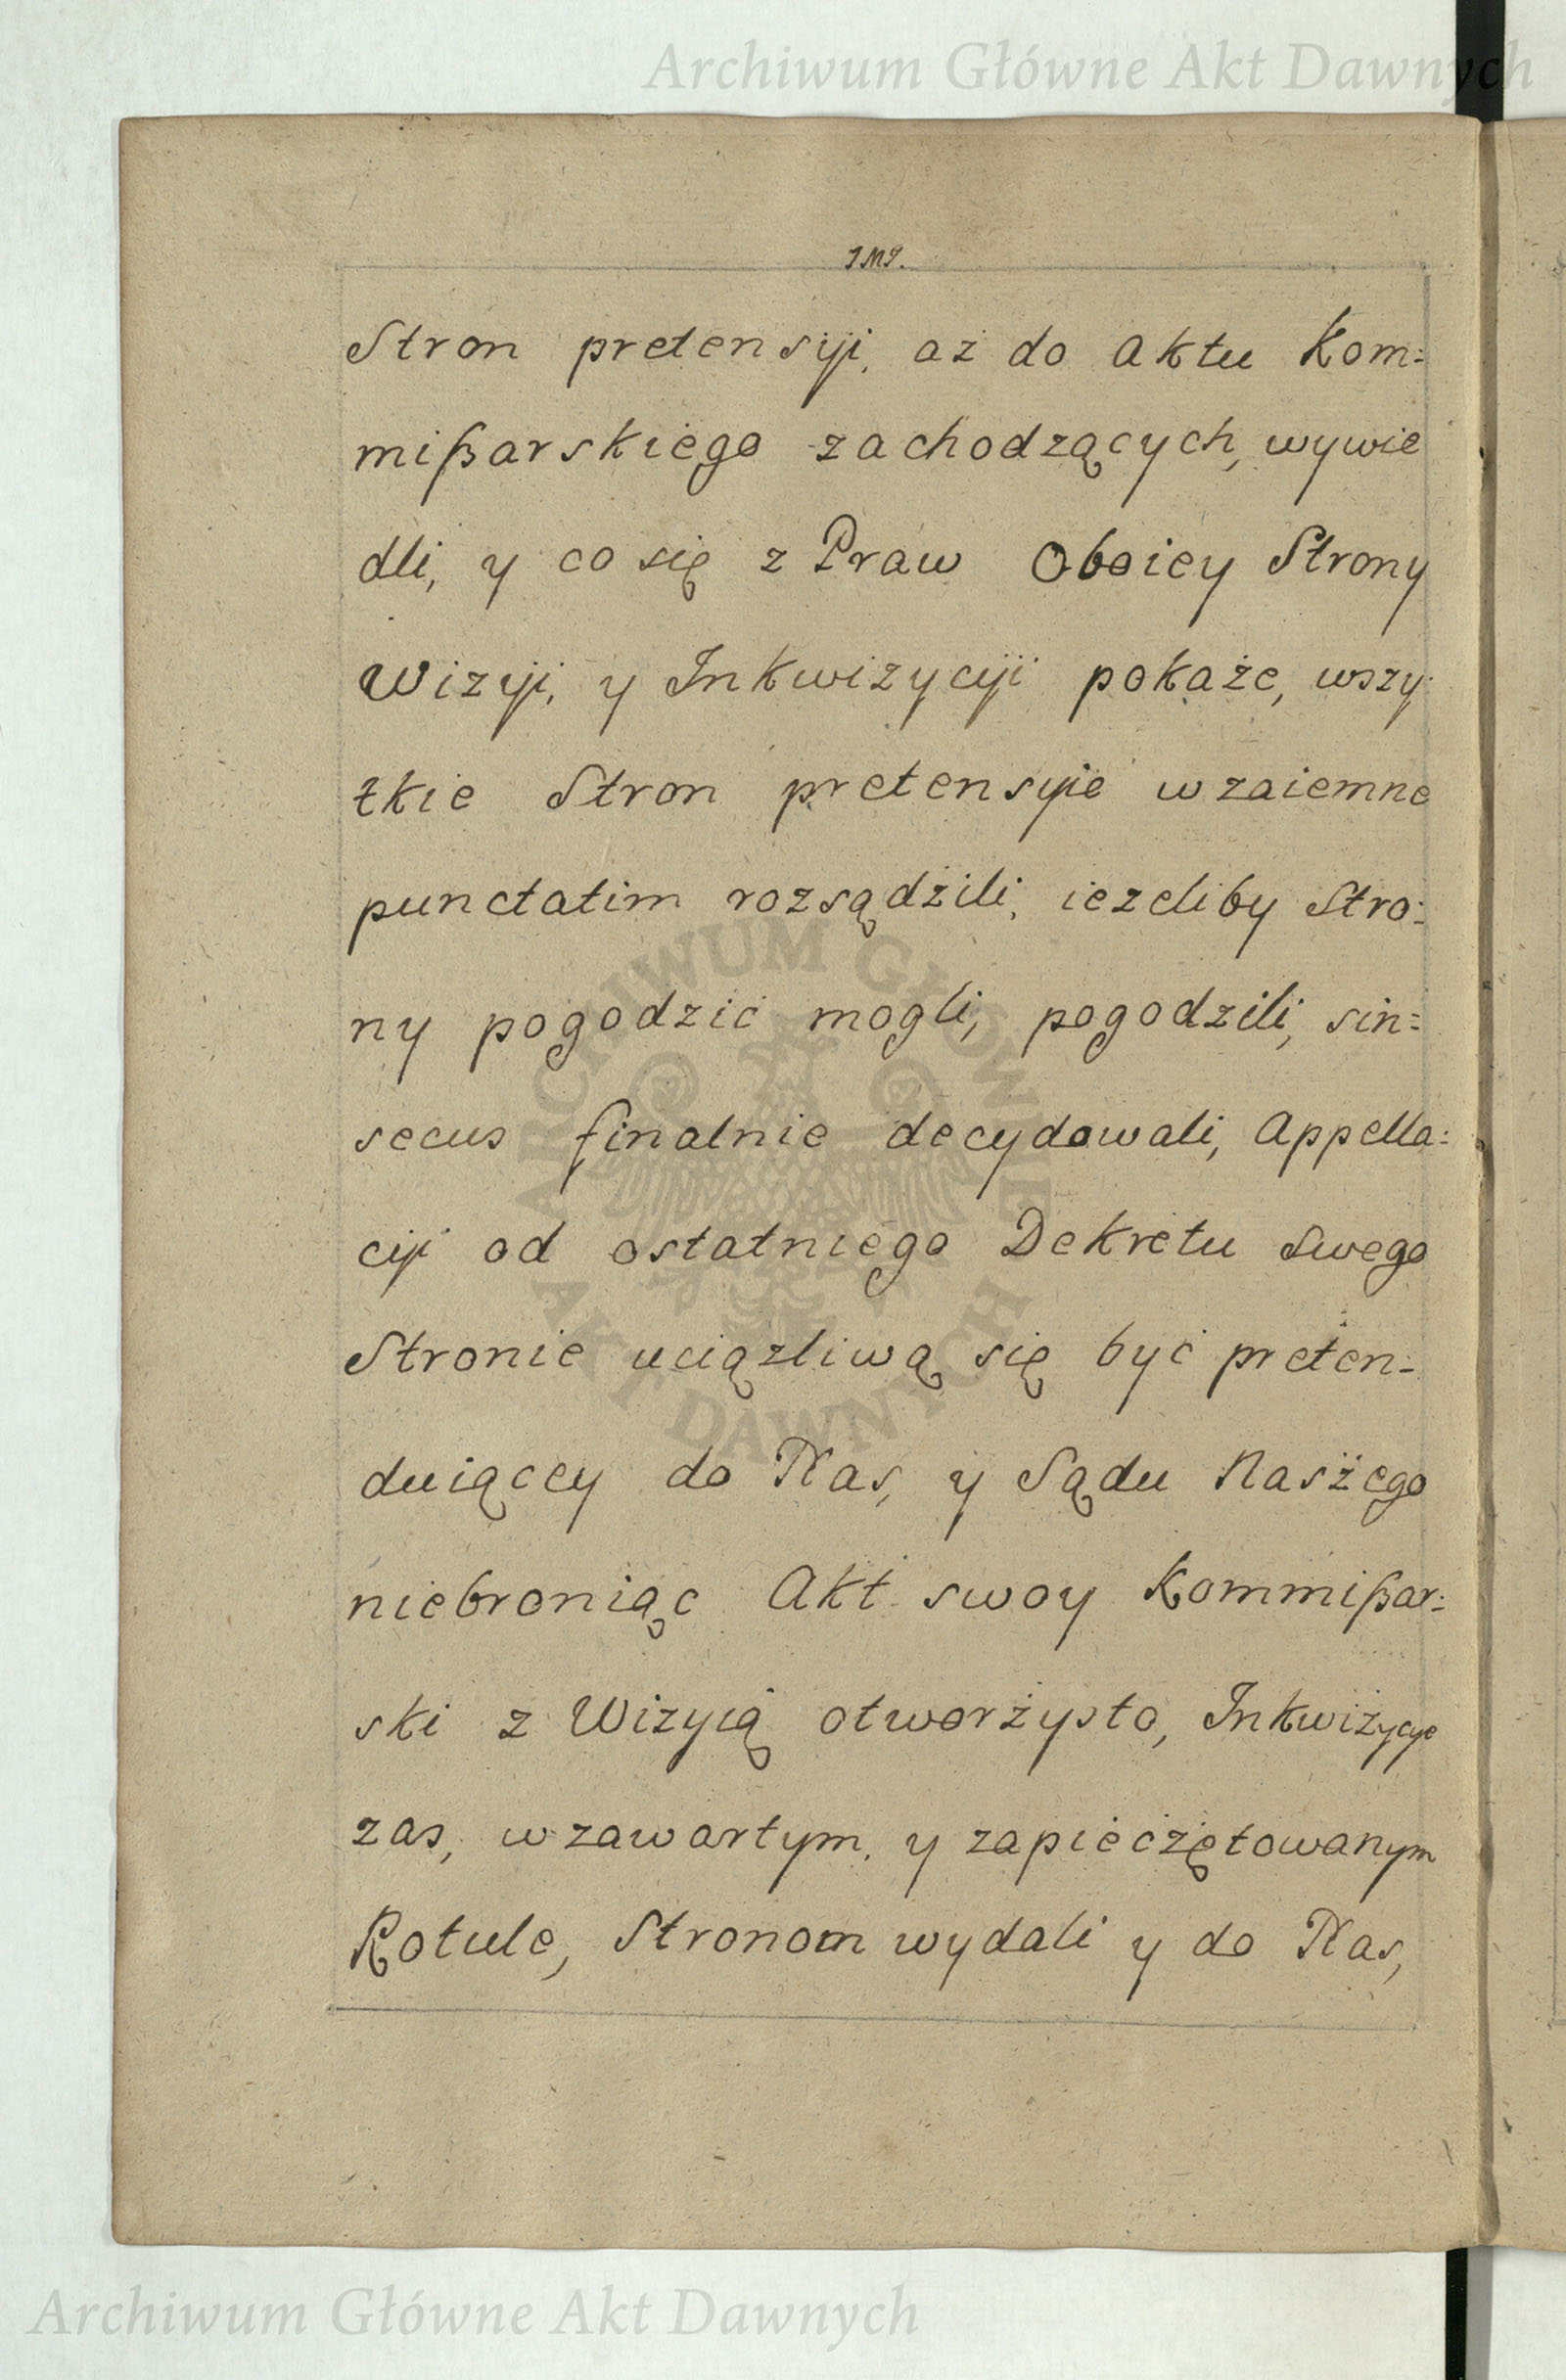 Archiwum Główne Akt Dawnych
JMJ.
Stron pretensyji, aż do aktu Kom=
mißarskiego zachodzących, wywie
dli, y co się z Praw Oboiey Strony
Wizyji, y Inkwizycyji pokaże, wszy
tkie Stron pretensyie wzaiemne
punctatim rozsądzili, ieżeliby Stro=
ny pogodzić mogli, pogodzili, sin=
secus finalnie decydowali, Appella=
cyi od ostatniego Dekretu swego
Stronie uciążliwą się być preten=
duiącey do Nas, y Sądu Naszego
niebroniąc Akt swoy Kommißar=
ski z Wizyią otworzysto, Inkwizycye
zas, w zawartym, y zapieczętowanym
Rotule, Stronom wydali y do Nas,
ARCHIWUM GŁÓWNE
AKT DAWNYCH
Archiwum Główne Akt Dawnych